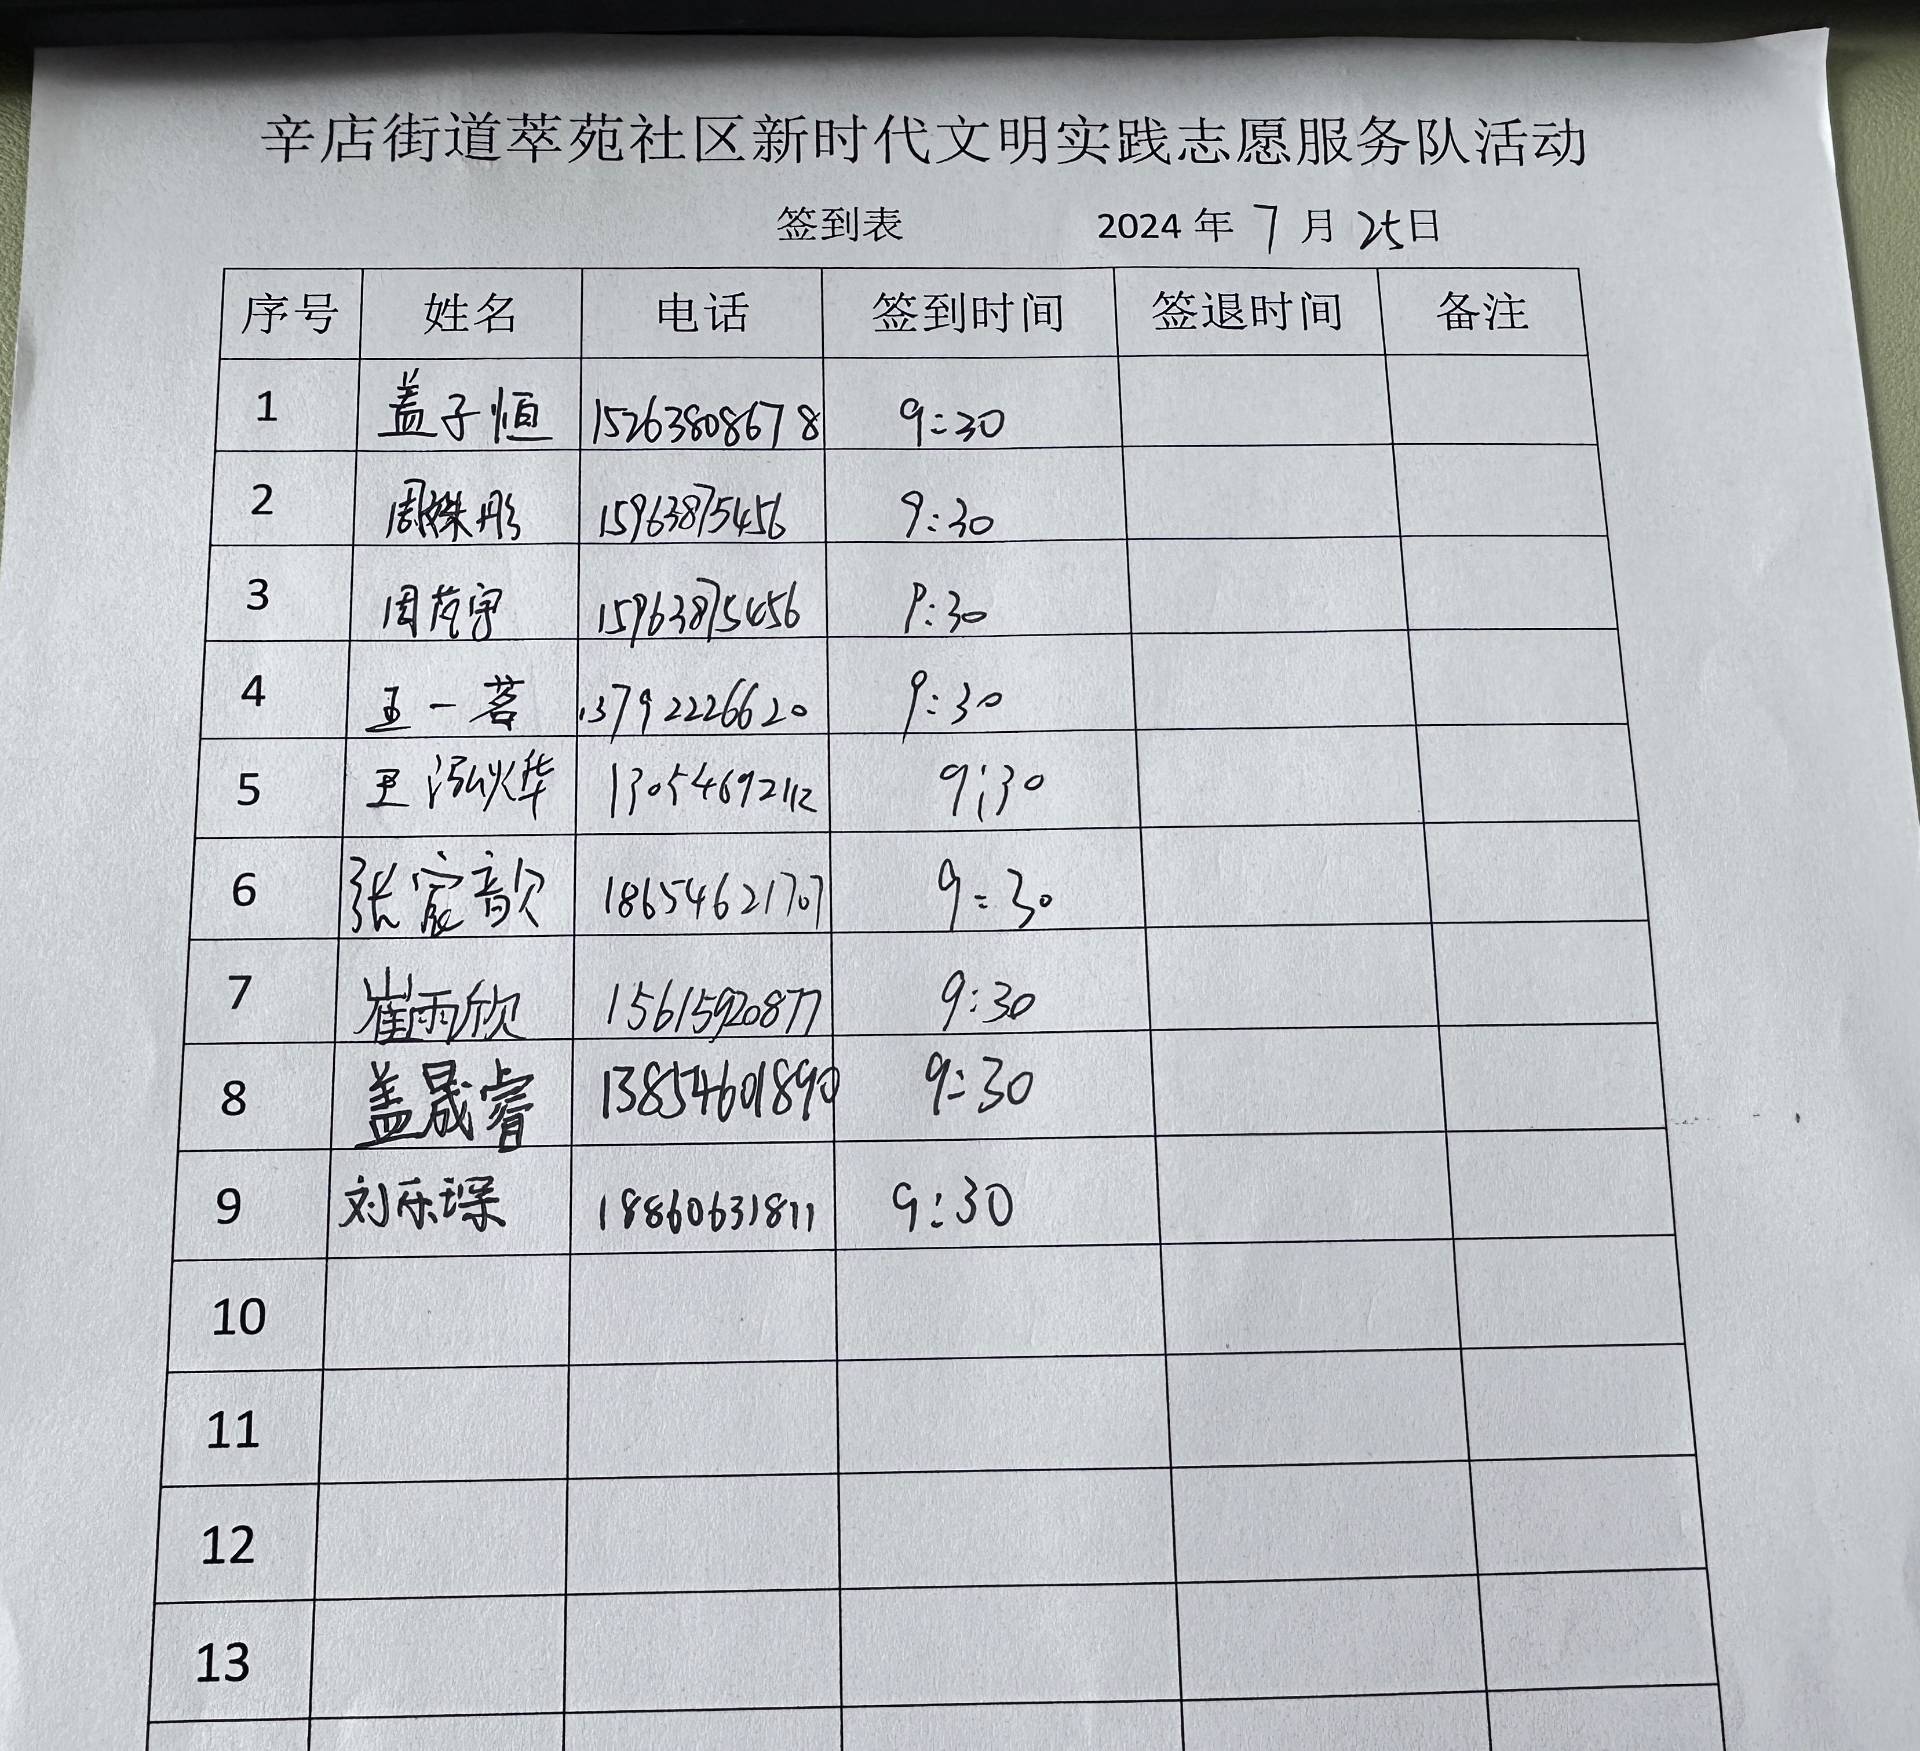 辛店街道萃苑社区新时代文明实践志愿服务队活动
签到表 2024 年 7 月 25日
序号 姓名 电话 签到时间 签退时间 备注
1 盖子恒 15263808678 9:30
2 周姝彤 15963875456 9:30
3 周芃宇 15963875456 9:30
4 王一茗 13792226620 9:30
5 王泓烨 13054692112 9:30
6 张宸歆 18654621707 9:30
7 崔雨欣 15615920877 9:30
8 盖晟睿 13854601890 9:30
9 刘乐琛 18860631811 9:30
10
11
12
13